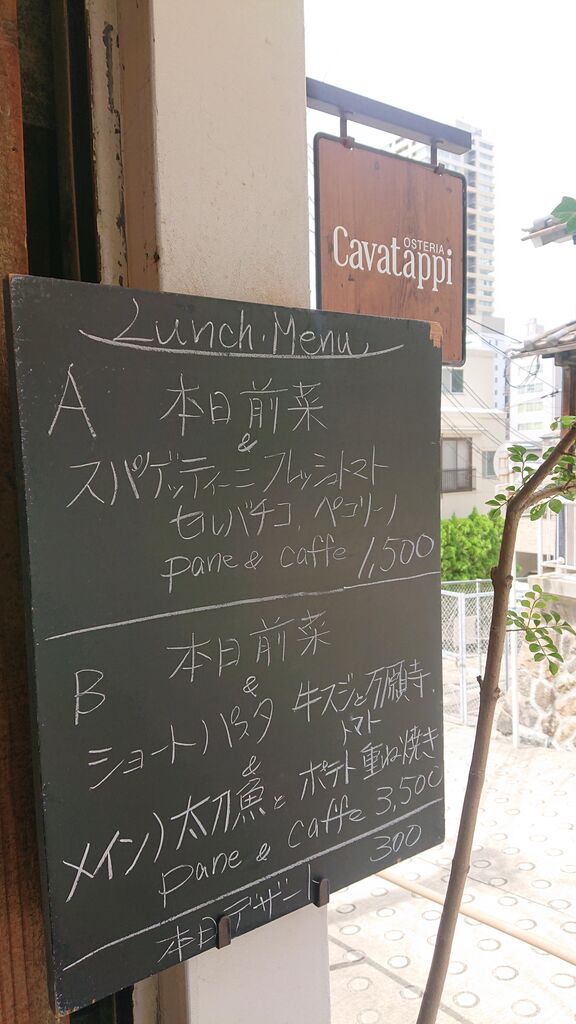 OSTERIA
Cavatappi
Lunch.Menu
A 本日前菜
&
スパゲッティーニ フレッシュトマト
セルバチコ、ペコリーノ
pane & caffe 1,500
B 本日前菜
&
ショートパスタ 牛スジと万願寺、
トマト
&
メイン)太刀魚とポテト重ね焼き
pane & caffe 3,500
本日デザート 300